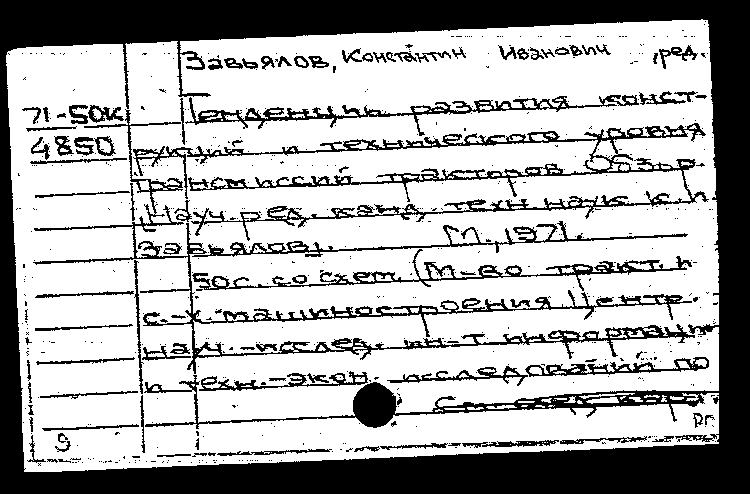 Завьялов, Константин Иванович, ред.
71-50к
4850
Тенденции развития конст-
рукций и технического уровня
трансмиссий тракторов. Обзор.
[Науч. ред. канд. техн. наук К.И.
Завьялов]. М., 1971.
50с. со схем. (М-во тракт. и
с.-х. машиностроения Центр.
науч.-исслед. ин-т информации
и техн.-экон. исследований по
См. след. карт.
9